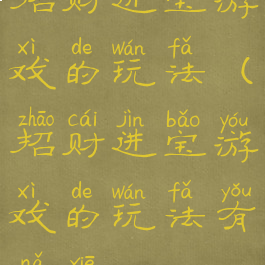 招财进宝游
xì de wán fǎ
戏的玩法（
zhāo cái jìn bǎo yóu
招财进宝游
xì de wán fǎ yǒu
戏的玩法有
nǎ xiē